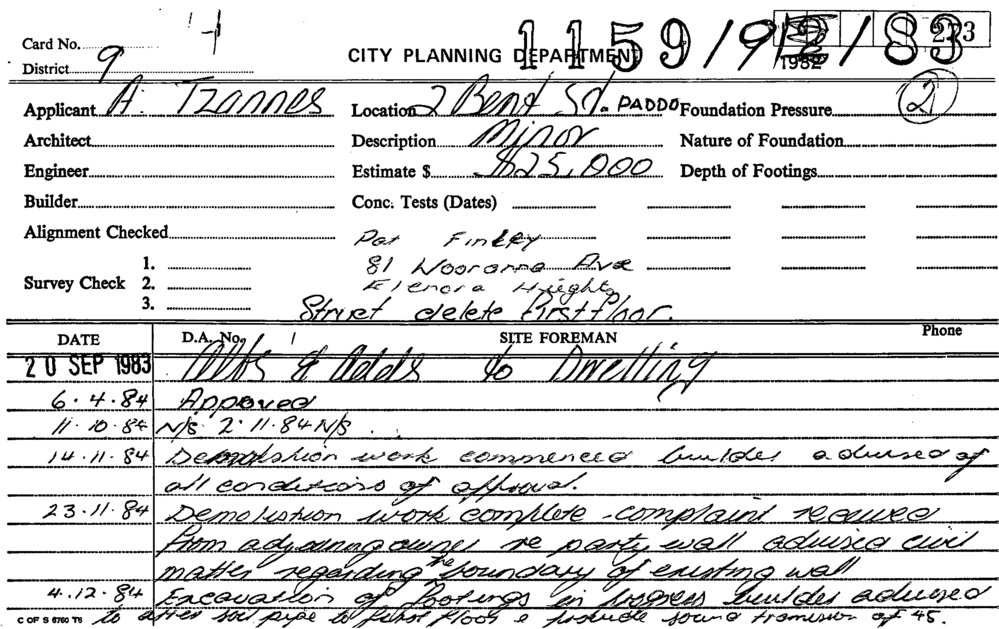 4
Card No.
District 9
CITY PLANNING DEPARTMENT
1159/ /83
1982
273
Applicant A. Tzannes Location 2 Bent St. PADDO Foundation Pressure 2
Architect Description Minor Nature of Foundation
Engineer Estimate $ $25,000 Depth of Footings
Builder Conc. Tests (Dates)
Alignment Checked Pat Finley
81 Wooranna Ave
Survey Check 1. 2. 3. Elenora Heights
Struct delete First Floor.
DATE D.A. No. SITE FOREMAN Phone
20 SEP 1983 Alts & Adds to Dwelling
6.4.84 Approved
11.10.84 N/S 2.11.84 N/S.
14.11.84 Demolstion work commenced builder advised of
all conditions of approval.
23.11.84 Demolistion work complete - complaint received
from adjoining owner re party wall advised civil
matter regarding the boundary of existing wall
4.12.84 Excavation of Footings in progress builder advised
C OF S 6760 T6 to soil pipe to first floor & provide sound of 45.